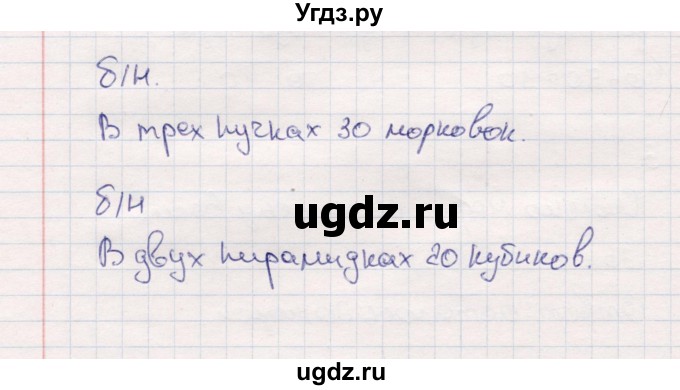 Угдз.ру
б/н.
В трех пучках 30 морковок.
б/н
ugdz.ru
В двух пирамидках 20 кубиков.
ugdz.ru